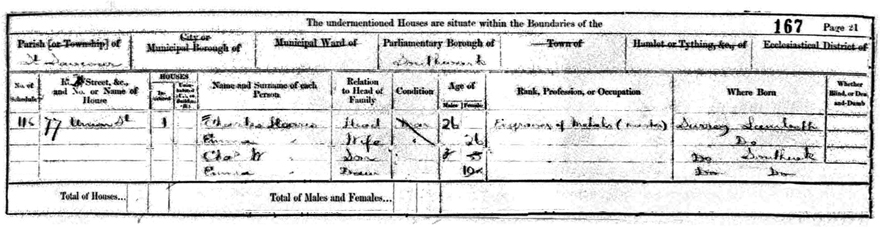 The undermentioned Houses are situate within the Boundaries of the
167 Page 21
Parish [or Township] of
City or Municipal Borough of
Municipal Ward of
Parliamentary Borough of
Town of
Hamlet or Tything, &c., of
Ecclesiastical District of
St Saviour
Southwark
No. of Schedule
Street, &c., and No. or Name of House
HOUSES
Inhabited
Name and Surname of each Person
Relation to Head of Family
Condition
Age of
Males
Females
Rank, Profession, or Occupation
Where Born
Whether Blind, or Deaf-and-Dumb
116 77 Union St 1 Charles Head Mar 26 Engraver of Metals Surrey Lambeth
Emma " Wife " 26 Do
Chas W " Son Do Southwark
Emma " Daur Do Do
Total of Houses...
Total of Males and Females...